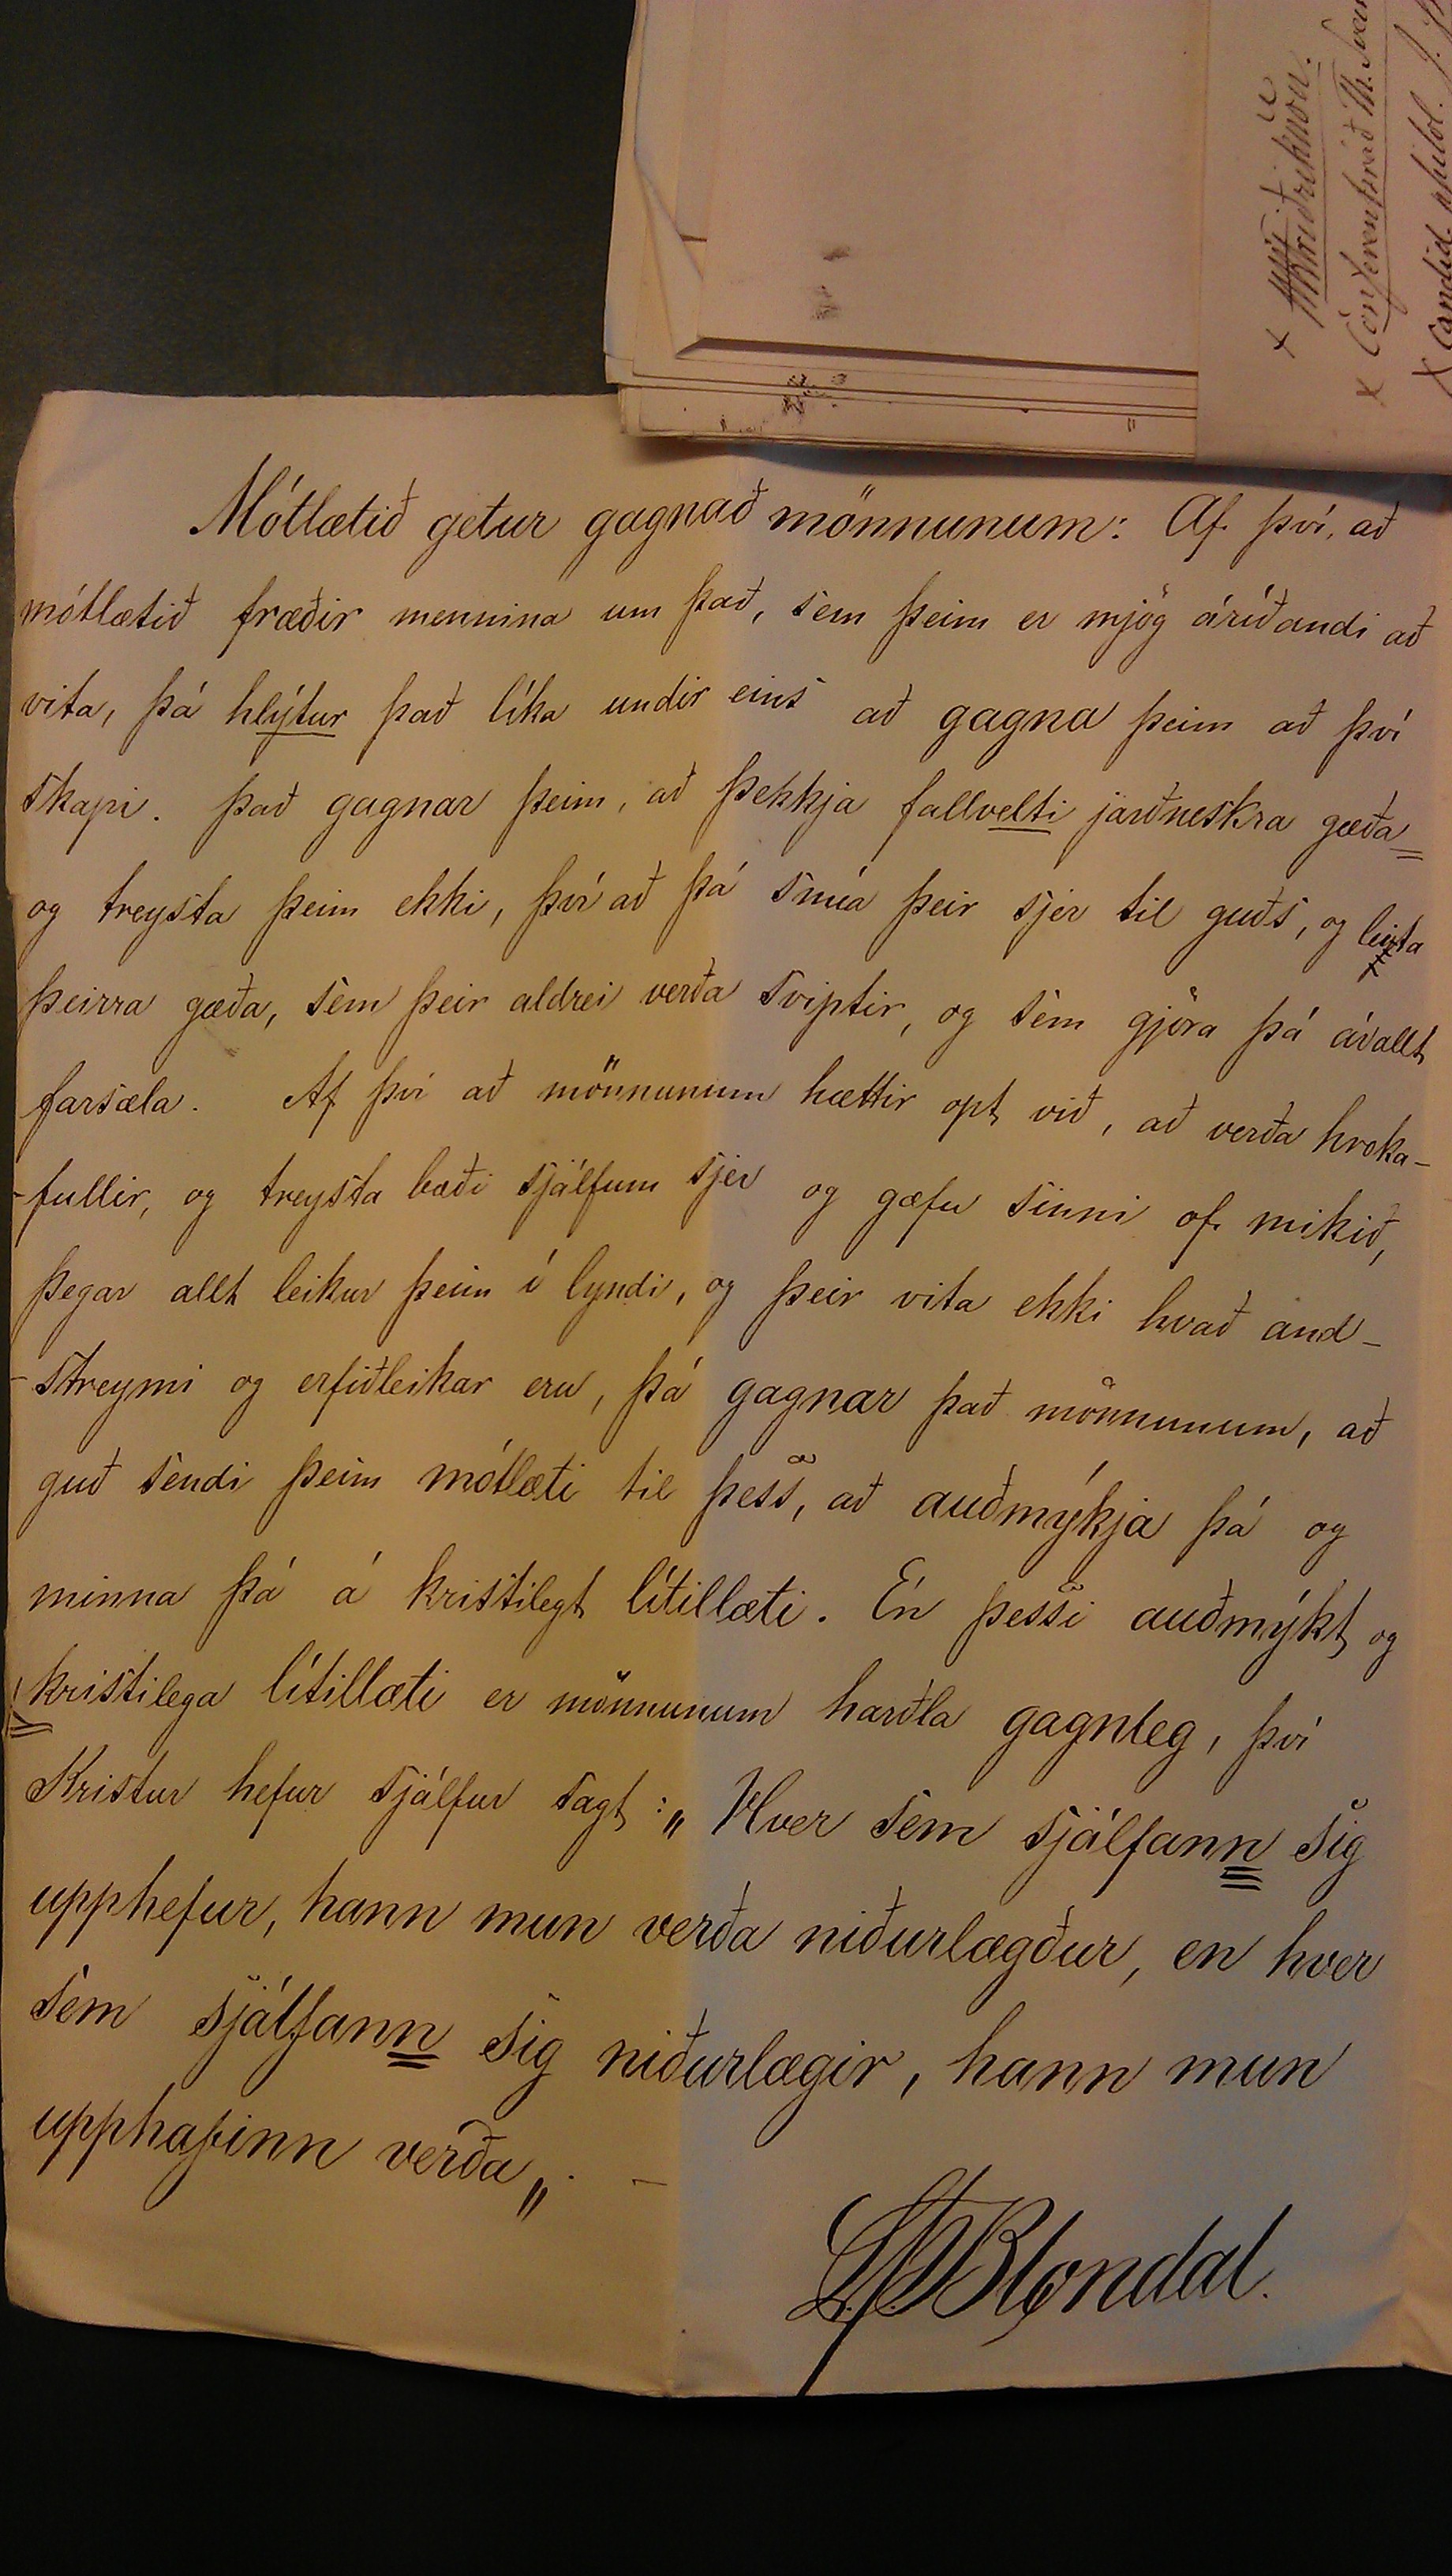 Mótlætið getur gagnað mönnunum: Af því, að
mótlætið fræðir mennina um það, sem þeim er mjög áríðandi að
vita, þá hlýtur það líka undir eins að gagna þeim að því
skapi. Það gagnar þeim, að þekkja fallvelti jarðneskra gæða
og treysta þeim ekki, því að þá snúa þeir sjer til guðs, og leita
þeirra gæða, sem þeir aldrei verða sviptir, og sem gjöra þá ávallt
farsæla. Af því að mönnunum hættir opt við, að verða hroka-
-fullir, og treysta bæði sjálfum sjer og gæfu sinni of mikið,
þegar allt leikur þeim í lyndi, og þeir vita ekki hvað and-
-streymi og erfiðleikar eru, þá gagnar það mönnunum, að
guð sendi þeim mótlæti til þess, að auðmýkja þá og
minna þá á kristilegt lítillæti. En þessi auðmýkt og
kristilega lítillæti er mönnunum harðla gagnleg, því
Kristur hefur sjálfur sagt: „Hver sem sjálfann sig
upphefur, hann mun verða niðurlægður, en hver
sem sjálfann sig niðurlægir, hann mun
upphafinn verða„. –
Blöndal.
x Friðriksson.
x Conferentsráð Th.
x Candid. philol. J.